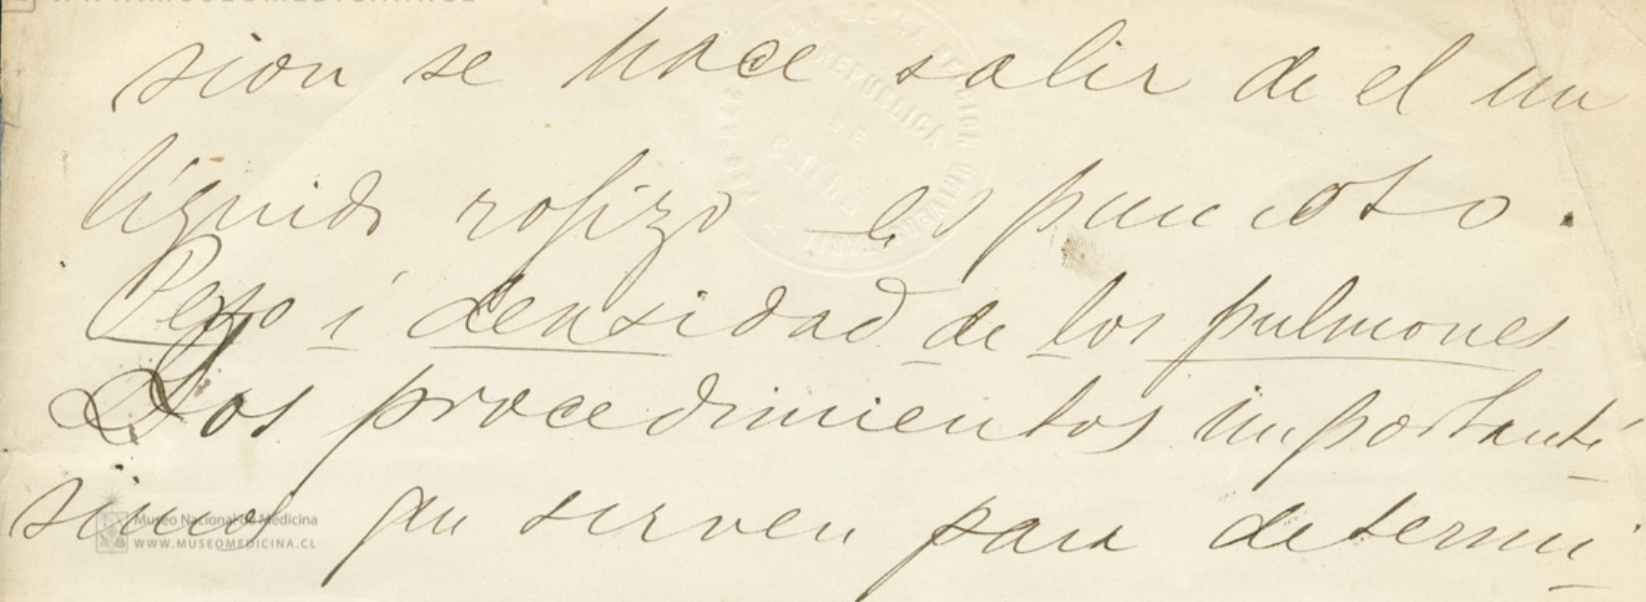 WWW.MUSEOMEDICINA.CL
sion se hace salir de el un
líquido rojizo espumoso.
Peso i densidad de los pulmones
Dos procedimientos importantí
simos que sirven para determi-
REPUBLICA
DE
CHILE
Museo Nacional de Medicina
WWW.MUSEOMEDICINA.CL